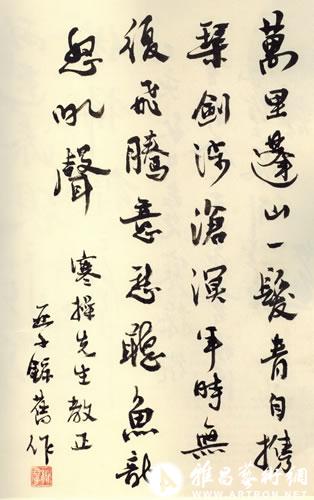 萬里蓬山一髮青自携
琴劍涉滄溟年時無
復飛騰意愁聽魚龍
怒吼聲
寒操先生教正
亞子錄舊作
雅昌藝術網
WWW.ARTRON.NET